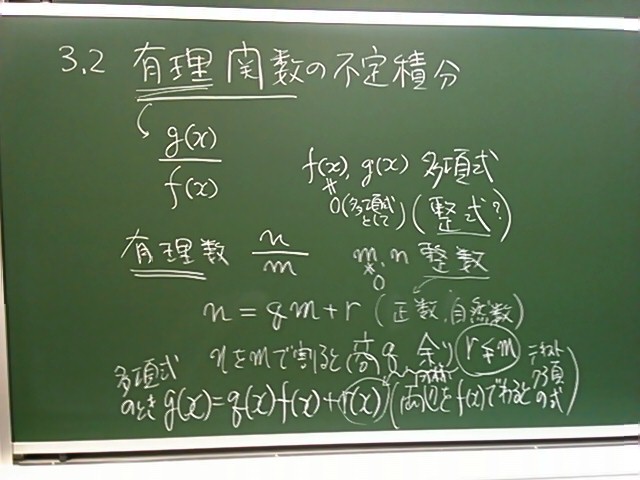 3.2 有理関数の不定積分
g(x)
f(x)
f(x), g(x) 多項式
≠
0(多項式として) (整式?)
有理数 n/m m, n 整数
≠
0
n = qm + r (正数, 自然数)
nをmで割ると(商q, 余り r≨m
多項式のとき g(x) = q(x)f(x) + r(x) (両辺をf(x)でわると
テキスト
の式)